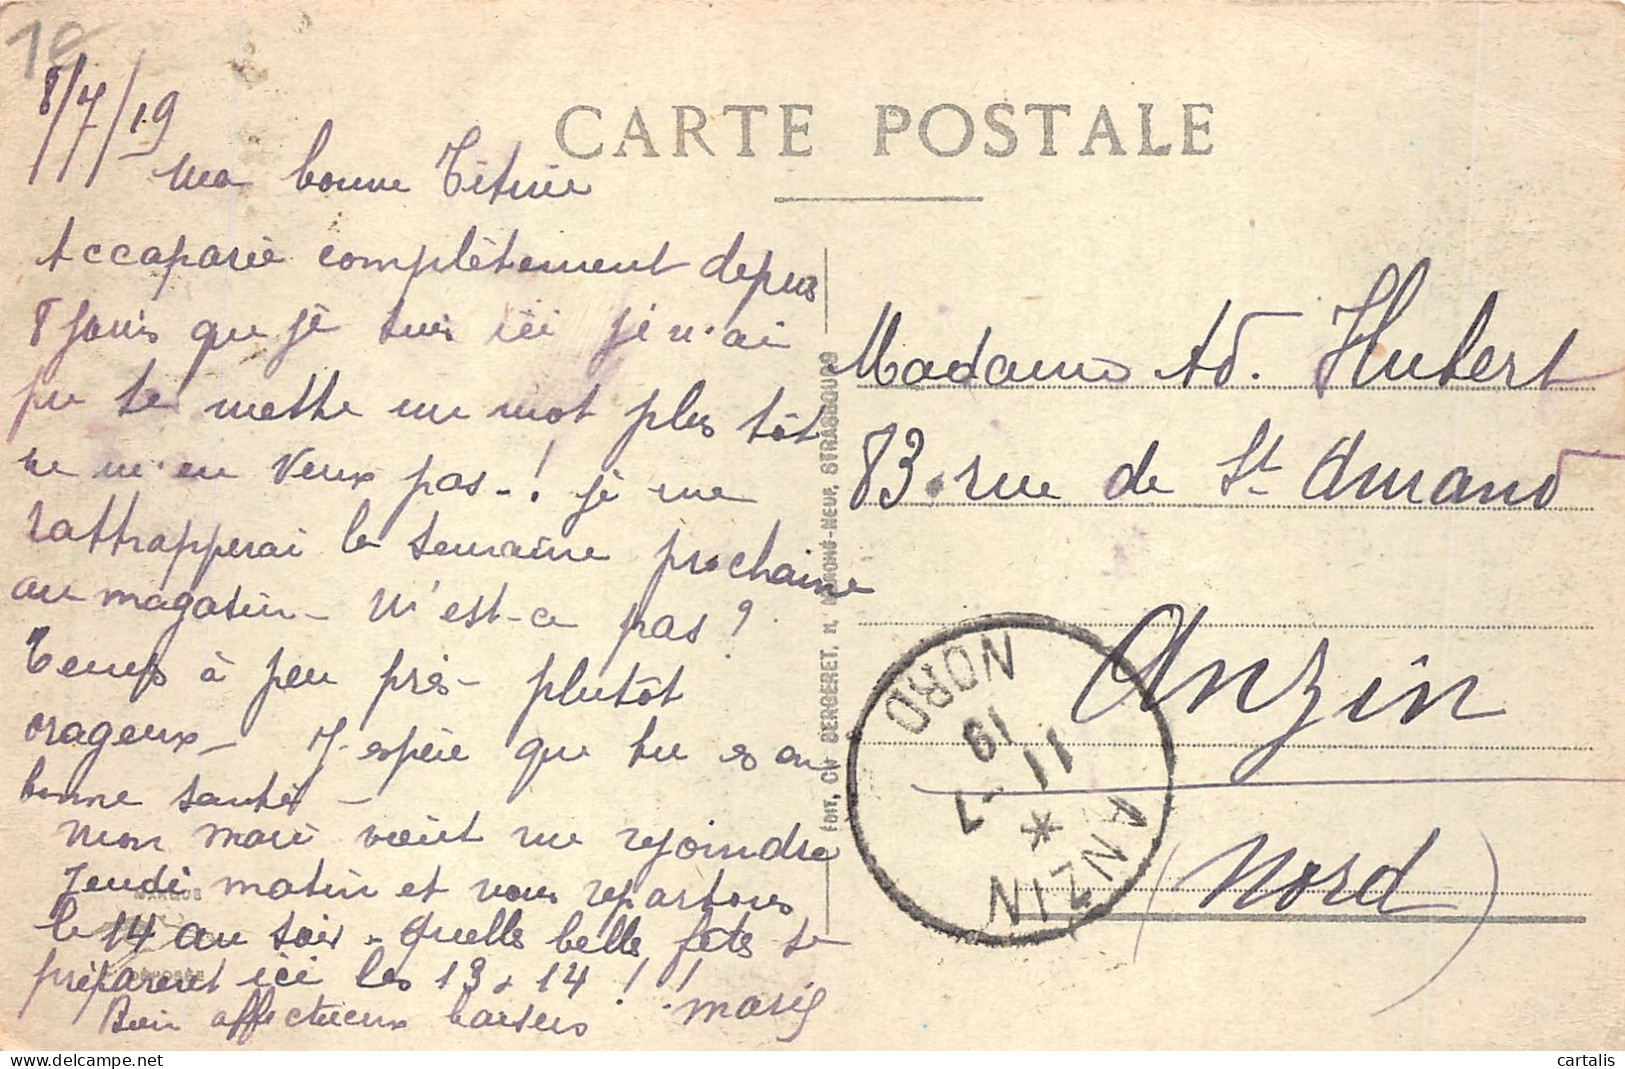 1e
8/7/19
CARTE POSTALE
Ma bonne Titine
Accaparée complètement depuis
8 jours que je suis ici je n'ai
pu te mettre un mot plus tôt
ne m'en veux pas -! je me
rattrapperai la semaine prochaine
au magasin - N'est-ce pas ?
Temps à peu près - plutôt
orageux - J'espère que tu es en
bonne santé -
Mon mari vient me rejoindre
Jeudi matin et nous repartons
le 14 au soir - Quelle belle fête se
préparent ici les 13 & 14 ! !
Bien affectueux baisers Marie
EDIT. CH BERGERET, H. NEUF, STRASBOURG
MARQUE
DÉPOSÉE
Madame Ad. Hubert
83. rue de St Amand
Anzin
(Nord)
ANZIN * NORD
11 - 7
19
cartalis